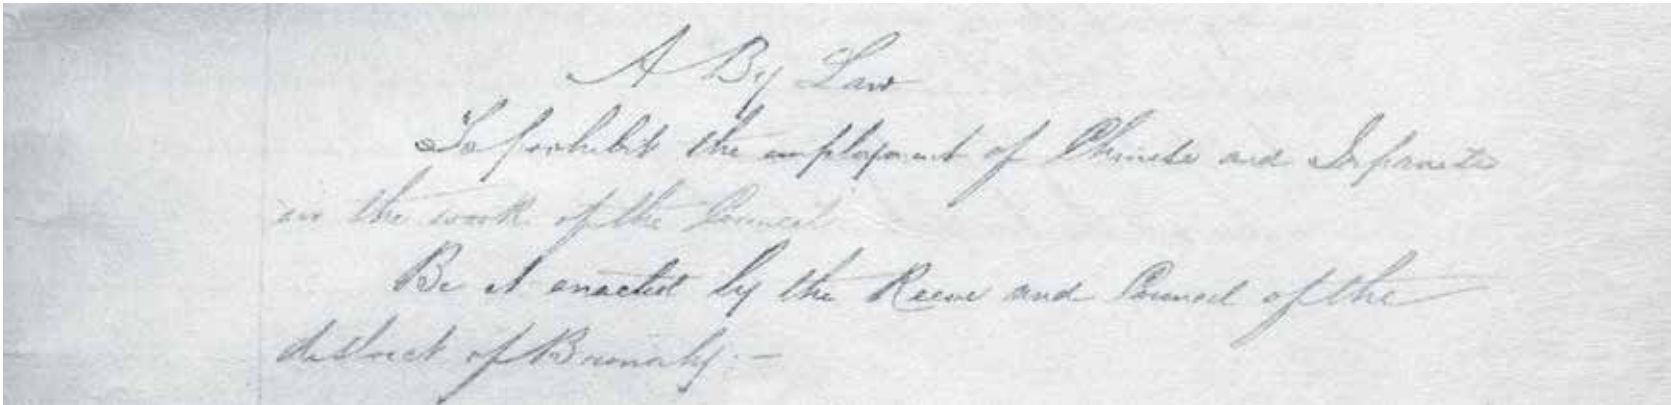 A By Law
To prohibit the employment of Chinese and Japanese
in the work of the Council.
Be it enacted by the Reeve and Council of the
district of Burnaby:—